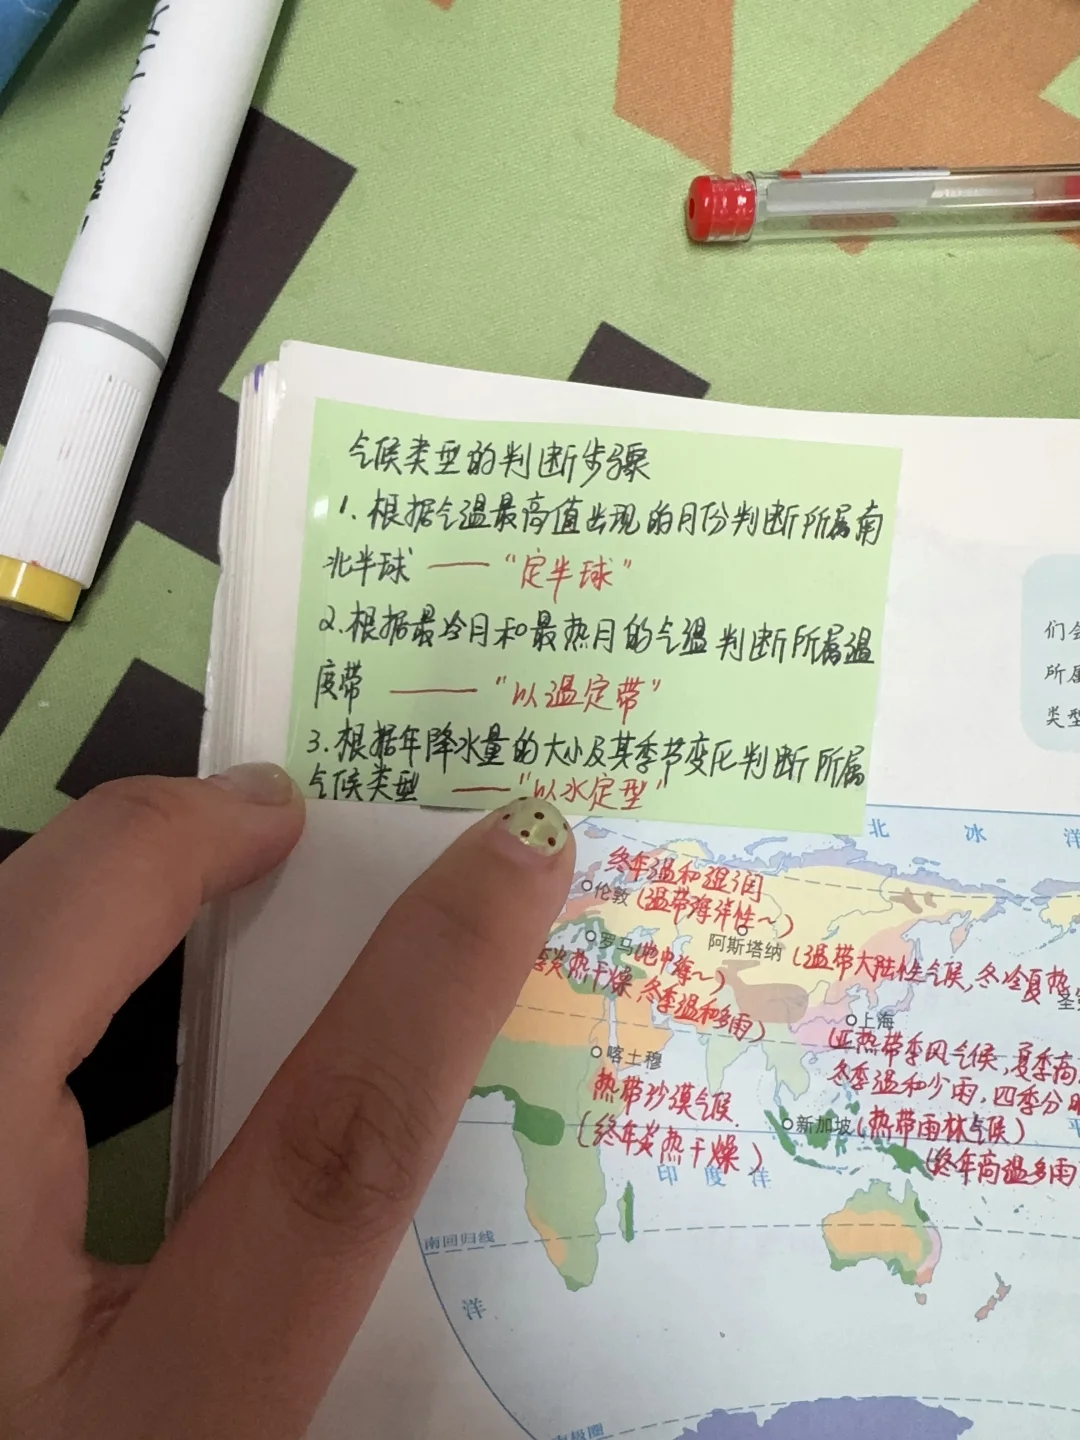 气候类型的判断步骤
1.根据气温最高值出现的月份判断所属南
北半球 —— “定半球”
2.根据最冷月和最热月的气温判断所属温
度带 —— “以温定带”
3.根据年降水量的大小及其季节变化判断所属
气候类型 —— “以水定型”
们会
所属
类型
北 冰 洋
终年温和湿润
伦敦(温带海洋性~)
罗马(地中海~)
阿斯塔纳(温带大陆性气候,冬冷夏热
季炎热干燥,冬季温和多雨)
上海
喀土穆
(亚热带季风气候,夏季高
热带沙漠气候
冬季温和少雨,四季分明
(终年炎热干燥)
新加坡(热带雨林气候)
(终年高温多雨
印 度 洋
南回归线
洋
南极圈